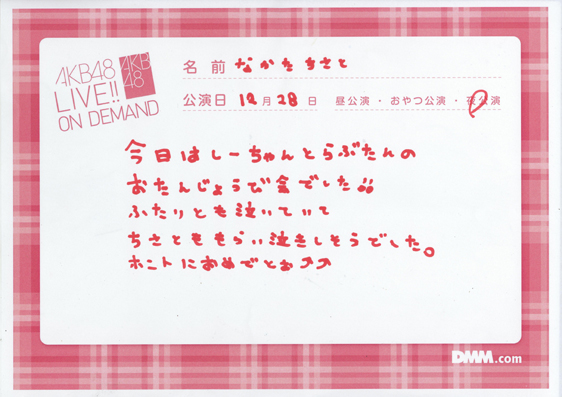 AKB48
LIVE!!
ON DEMAND
AKB
48
名前 なかたちさと
公演日 12月28日 昼公演・おやつ公演・夜公演
今日はしーちゃんとらぶたんの
おたんじょうび会でした!!
ふたりとも泣いていて
ちさとももらい泣きしそうでした。
ホントにおめでとお⤴⤴
DMM.com